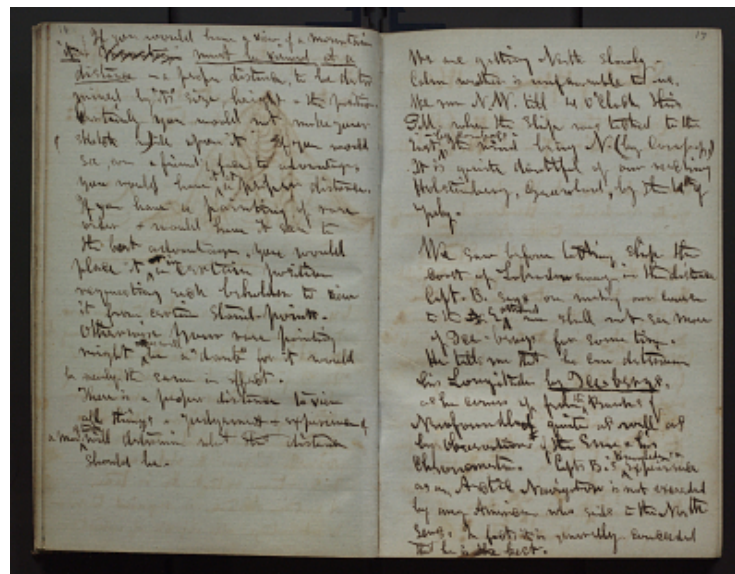 If you would have a view of a mountain
it must be viewed at a
distance - a proper distance, to be deter
mined by its size, height & the position.
Certainly you would not make your
sketch while upon it. If you would
see, even a friend's face to advantage,
you would have it at proper distance.
If you have a painting of rare
order & would have it seen to
the best advantage, you would
place it in certain position
requesting each beholder to view
it from certain stand-point.
Otherwise your rare painting
might as well be a "daub" for it would
be nearly the same in effect.
There is a proper distance to view
all things & judgement & experience of
a man will determine what the distance
should be.
17
We are getting North slowly.
Calm weather is unfavorable to us.
We run N.W. till 4 O'Clock this
P.M. when the ship was tacked to the
East, the wind being N. (by Compass)
It is quite doubtful of our reaching
Holsteinborg, Greenland, by the 4th of
July.
We saw before tacking ship the
coast of Labrador away in the distance
Capt. B. says on making our
to the Eastward we shall not see more
of Ice-bergs for some time.
He tells me that he can determine
his Longitude by Ice bergs,
as he comes up from the Banks of
Newfoundland quite as well as
by Observations of the Sun & his
Chronometer. Capt. B.'s experience
as an Arctic Navigator is not exceeded
by any American who sails in the North
Seas. In fact, it is generally conceded
that he is the best.